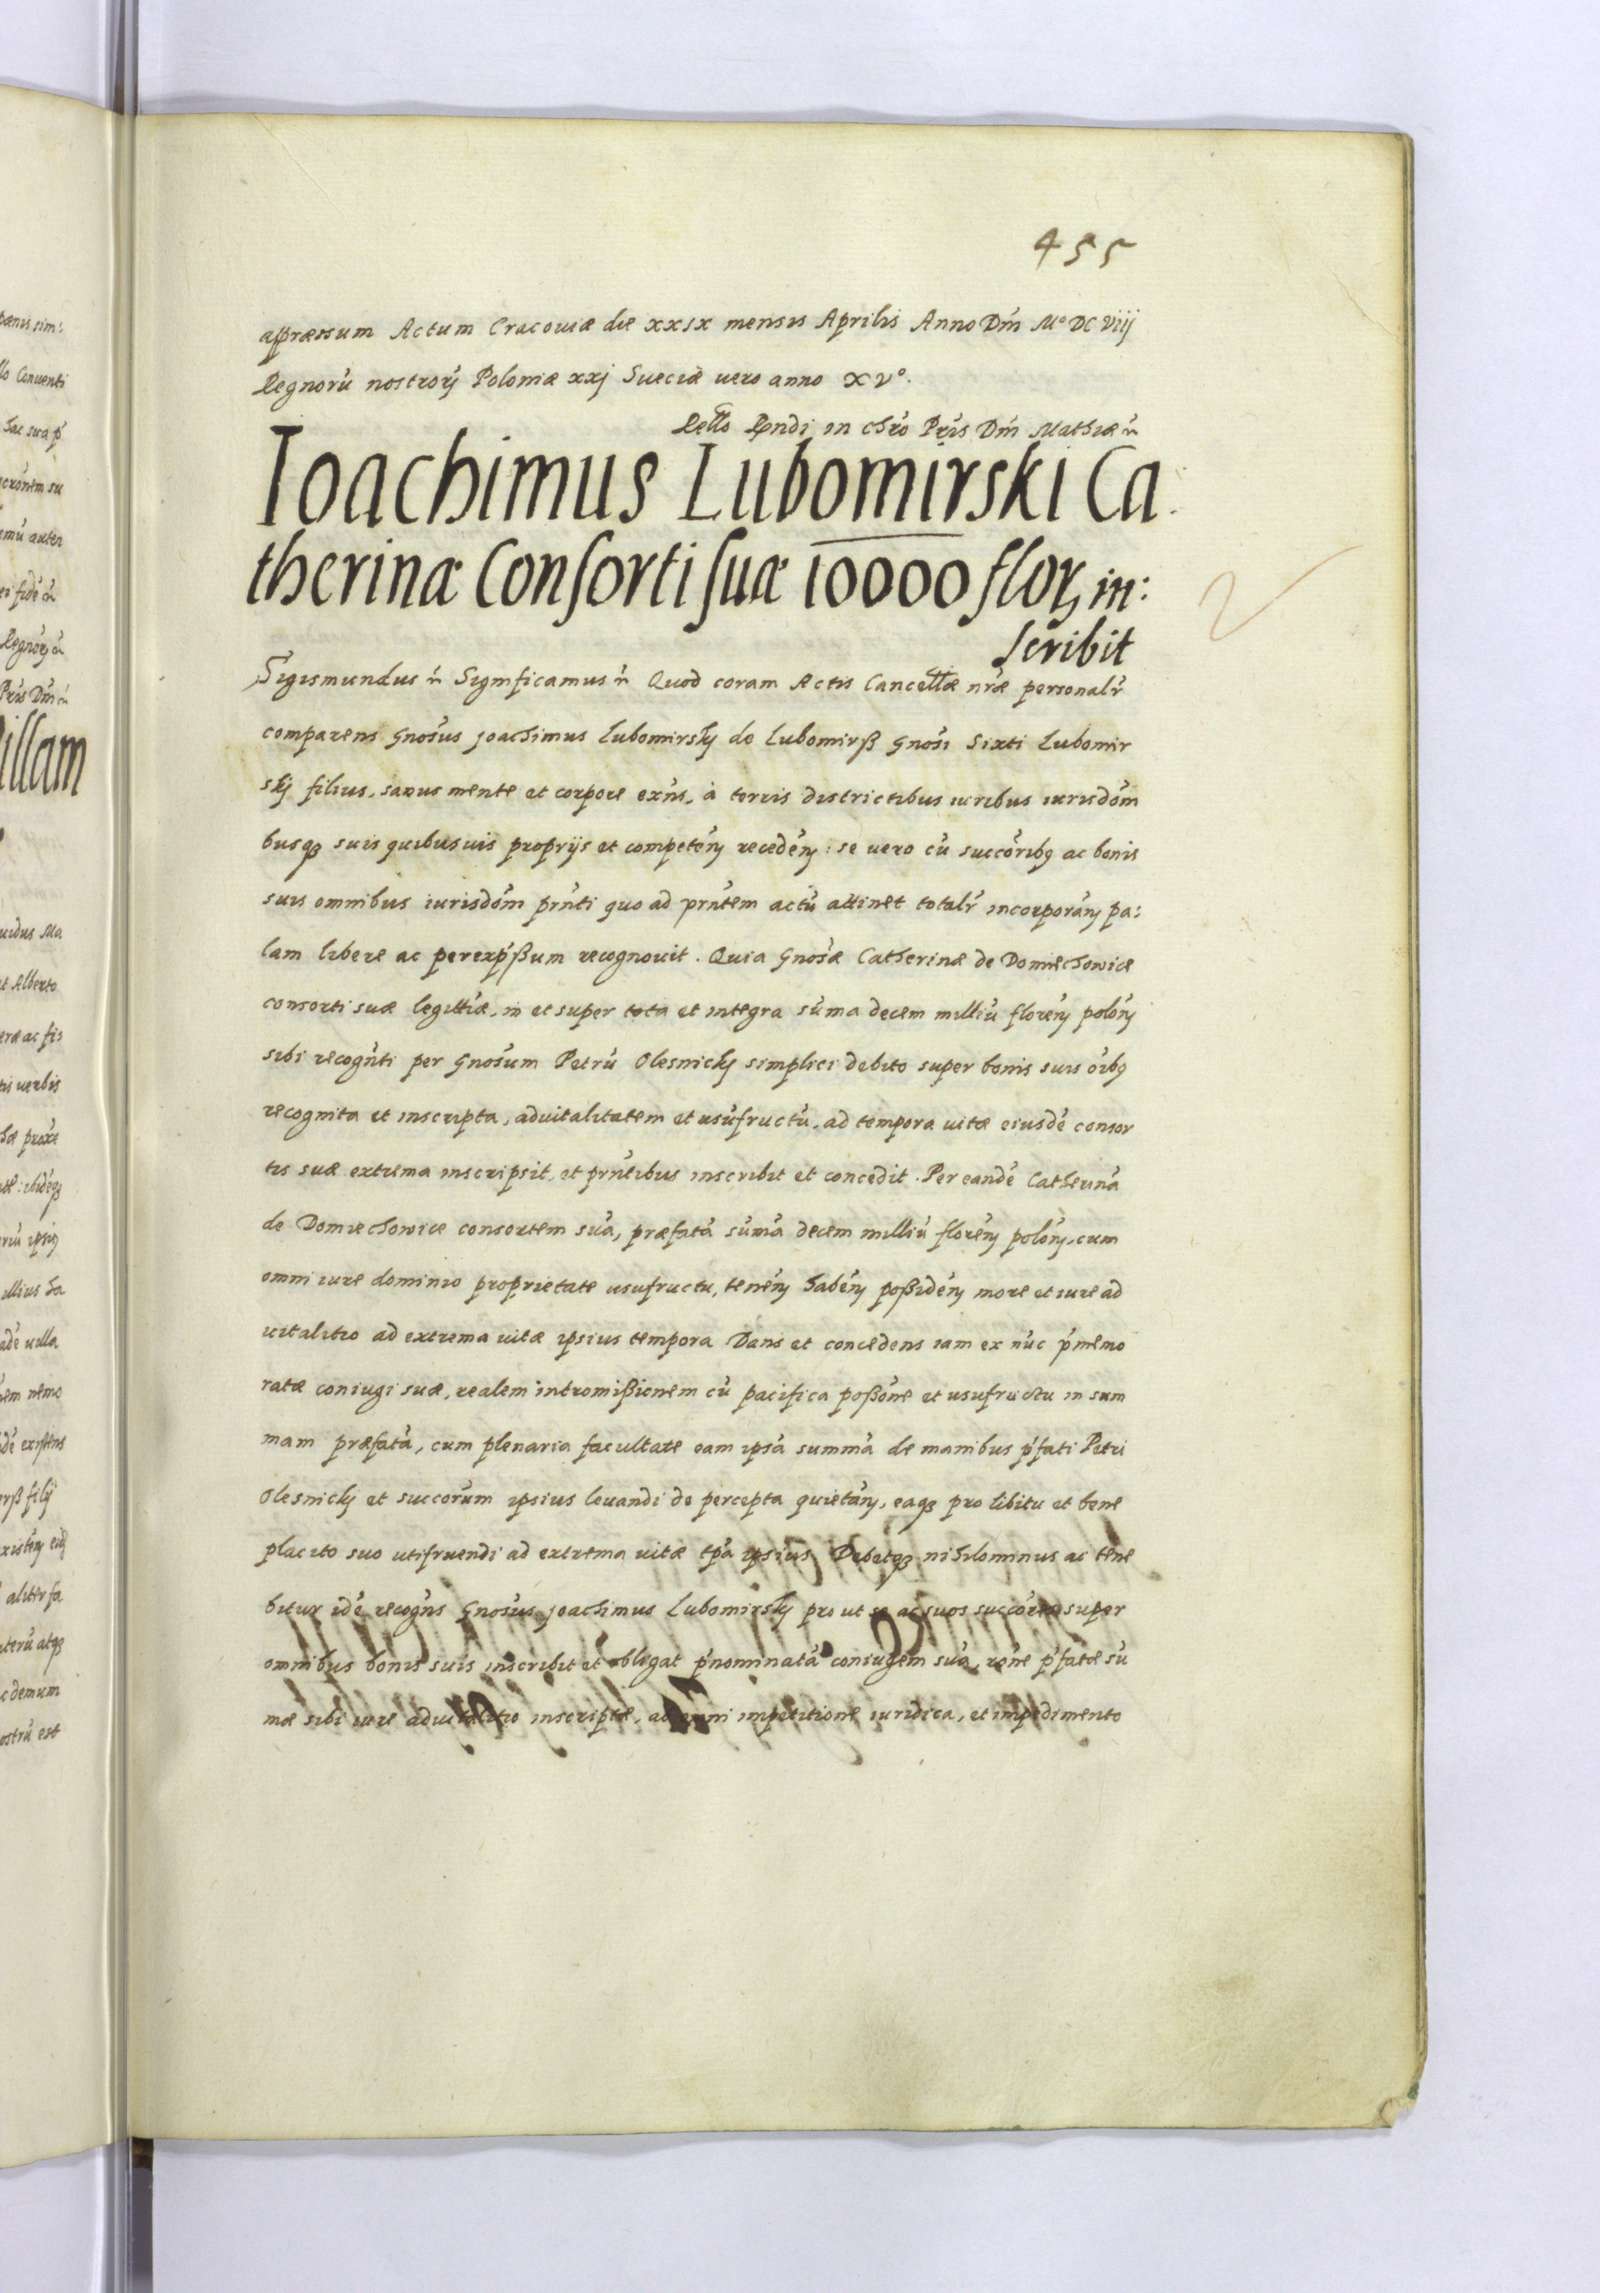 455
appræssum Actum Cracoviæ die xxix mensis Aprilis Anno Dm̄ M° DC Viij
Regnorū nostrorꝫ Poloniæ xxj Sueciæ uero anno xv°.
Rello Rndi in Chr̄o Pr̄is Dm̄ Mathiæ
Ioachimus Lubomirski Ca
therinæ Consorti suæ 10000 flor in:
scribit
Sigismundus Significamus Quod coram Actis Cancellæ nr̄æ personalr̄
comparens Gnosus Joachimus Lubomirskj de Lubomirß Gnosi Sixti Lubomir
skj filius, sanus mente et corpore exn̄s, à terris districtibus iuribus iurisdōm
busqꝫ suis quibusuis proprijs et competēn recedēn: se uero cū succōribꝫ ac bonis
suis omnibus iurisdōm prn̄ti quo ad prn̄tem actū attinet totalr̄ incorporān pa:
lam libere ac perexp̄ßum recognouit. Quia Gnosæ Catherinæ de Domiechowice
consorti suæ legittīæ, in et super tota et integra sūma decem milliū florēn polōn
sibi recogn̄ti per Gnosum Petrū Olesnickj simplici debito super bonis suis oībꝫ
recognita et inscripta, aduitalitatem et usūfructū, ad tempora uitæ eiusdē consor
tis suæ extrema inscripsit, et prn̄tibus inscribit et concedit. Per eandē Catherinā
de Domiechowice consortem suā, præfatā sūmā decem milliū florēn polōn, cum
omni iure dominio proprietate usufructu, tenēn habēn poßidēn more et iure ad
uitalitio ad extrema uitæ ipsius tempora Dans et concedens iam ex nūc p̄memo
ratæ coniugi suæ, realem intromißionem cū pacifica poßōne et usufructu in sum
mam præfatā, cum plenaria facultate eam ipsā summā de manibus p̄fati Petri
Olesnickj et succorum ipsius leuandi de percepta quietān, eaqꝫ pro libitu et bene
placito suo utifruendi ad extrema uitæ tp̄a ipsius Debetqꝫ nihilominus ac tene
bitur idē recogn̄s Gnosus Joachimus Lubomirskj pro ut se ac suos succōres super
omnibus bonis suis inscribit et obligat p̄nominatā coniugem suā, rōne p̄fatæ sū
mæ sibi iure aduitalitio inscriptæ, ab omni impetitione iuridica, et impedimento